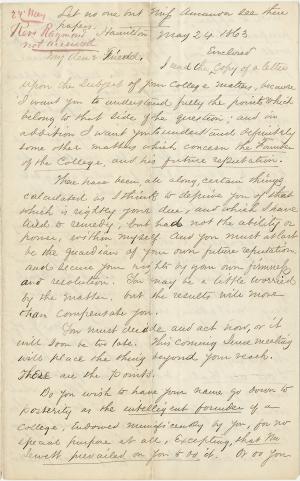 24 May
Let no one but Miss Amanda see these papers.
Revs Raymond
not received
Hamilton May 24. 1863
My Dear Friend.
Enclosed
I send the copy of a letter
upon the Subject of your College matters, because
I want you to understand fully the points which
belong to that side of the question; and in
addition I want you to understand definitely
some other matters which concern the Founder
of the College, and his future reputation.
There have been all along certain things
calculated as I think to deprive you of that
which is rightly your due, and which I have
tried to remedy, but had not the ability or
power, within myself and you must at last
be the guardian of your own future reputation
and secure your rights by your own firmness
and resolution. You may be a little worried
by the matter. but the results will more
than compensate you.
You must decide and act now, or it
will soon be too late. This coming June meeting
will place the thing beyond your reach.
These are the Points.
Do you wish to have your name go down to
posterity as the intelligent founder of a
College, endowed munificently by you, for no
special purpose at all, Excepting, that Mr
Jewett prevailed on you to do it. Or do you